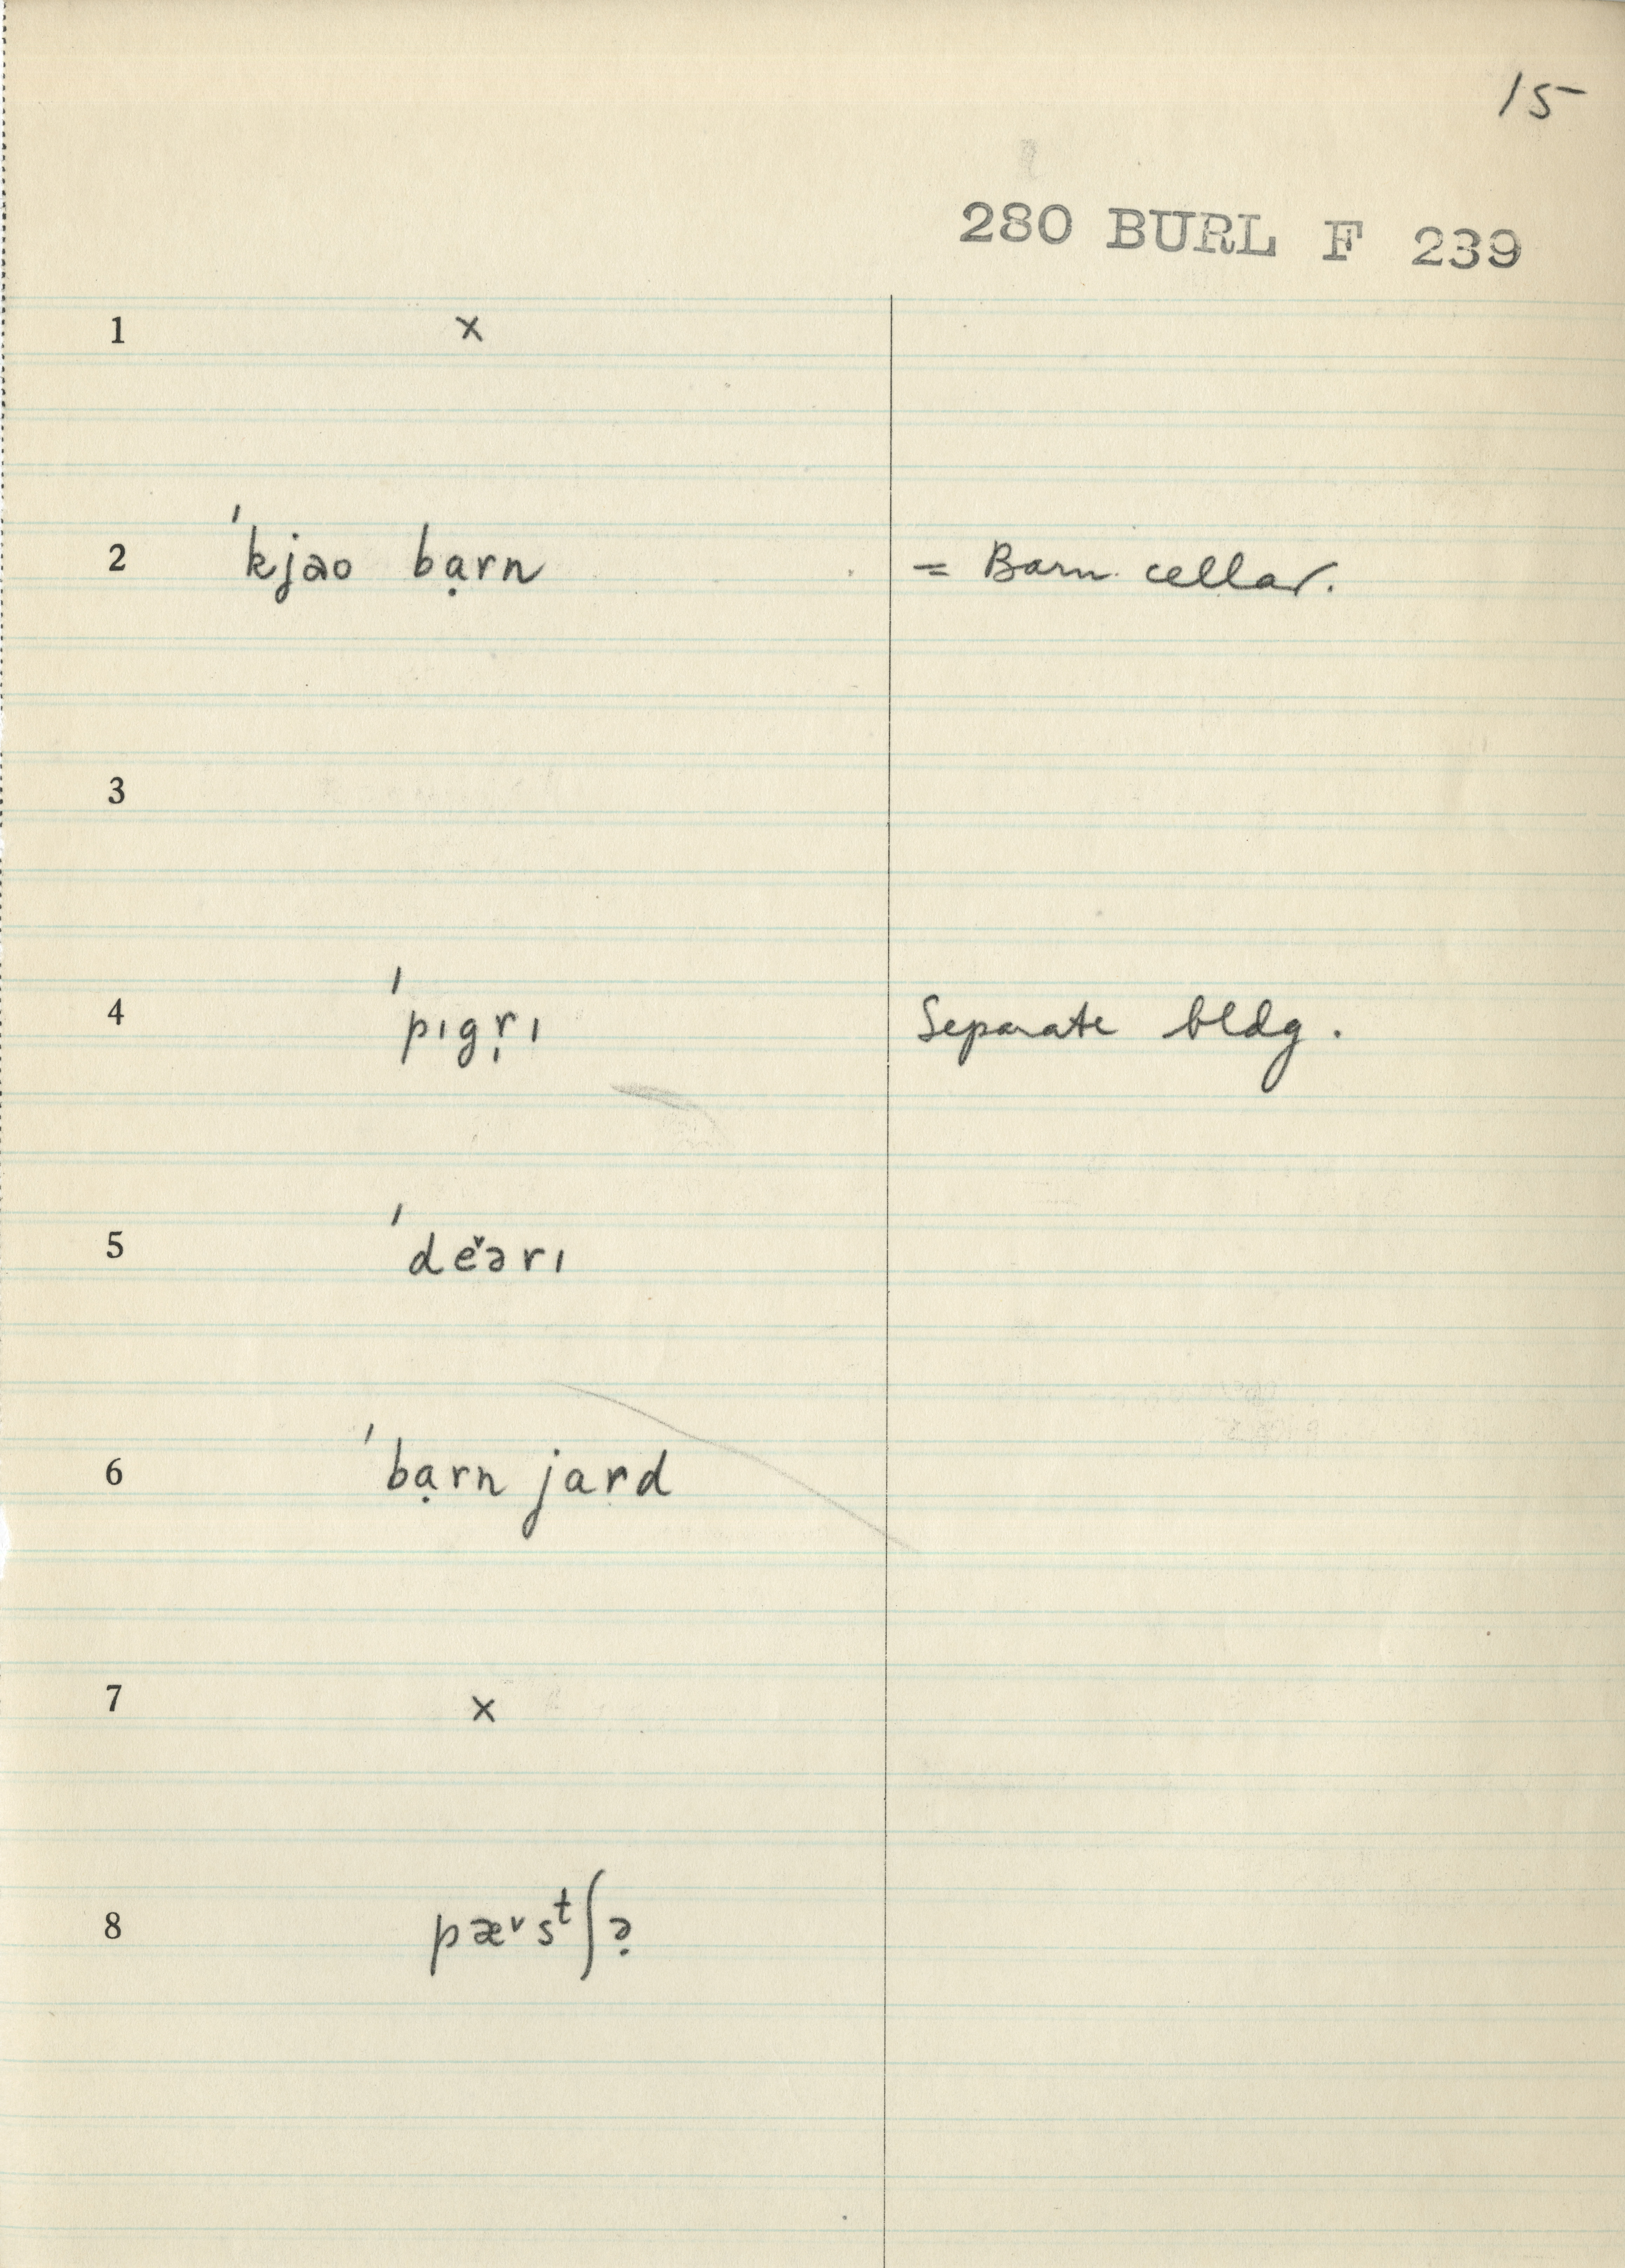 15
280 BURL F 239
1 x
2 ˈkjao bạrn = Barn cellar.
3
4 ˈpɪgṛɪ Separate bldg.
5 ˈdeˇərɪ
6 ˈbạrn jard
7 x
8 pæᵛsᵗʃə̣